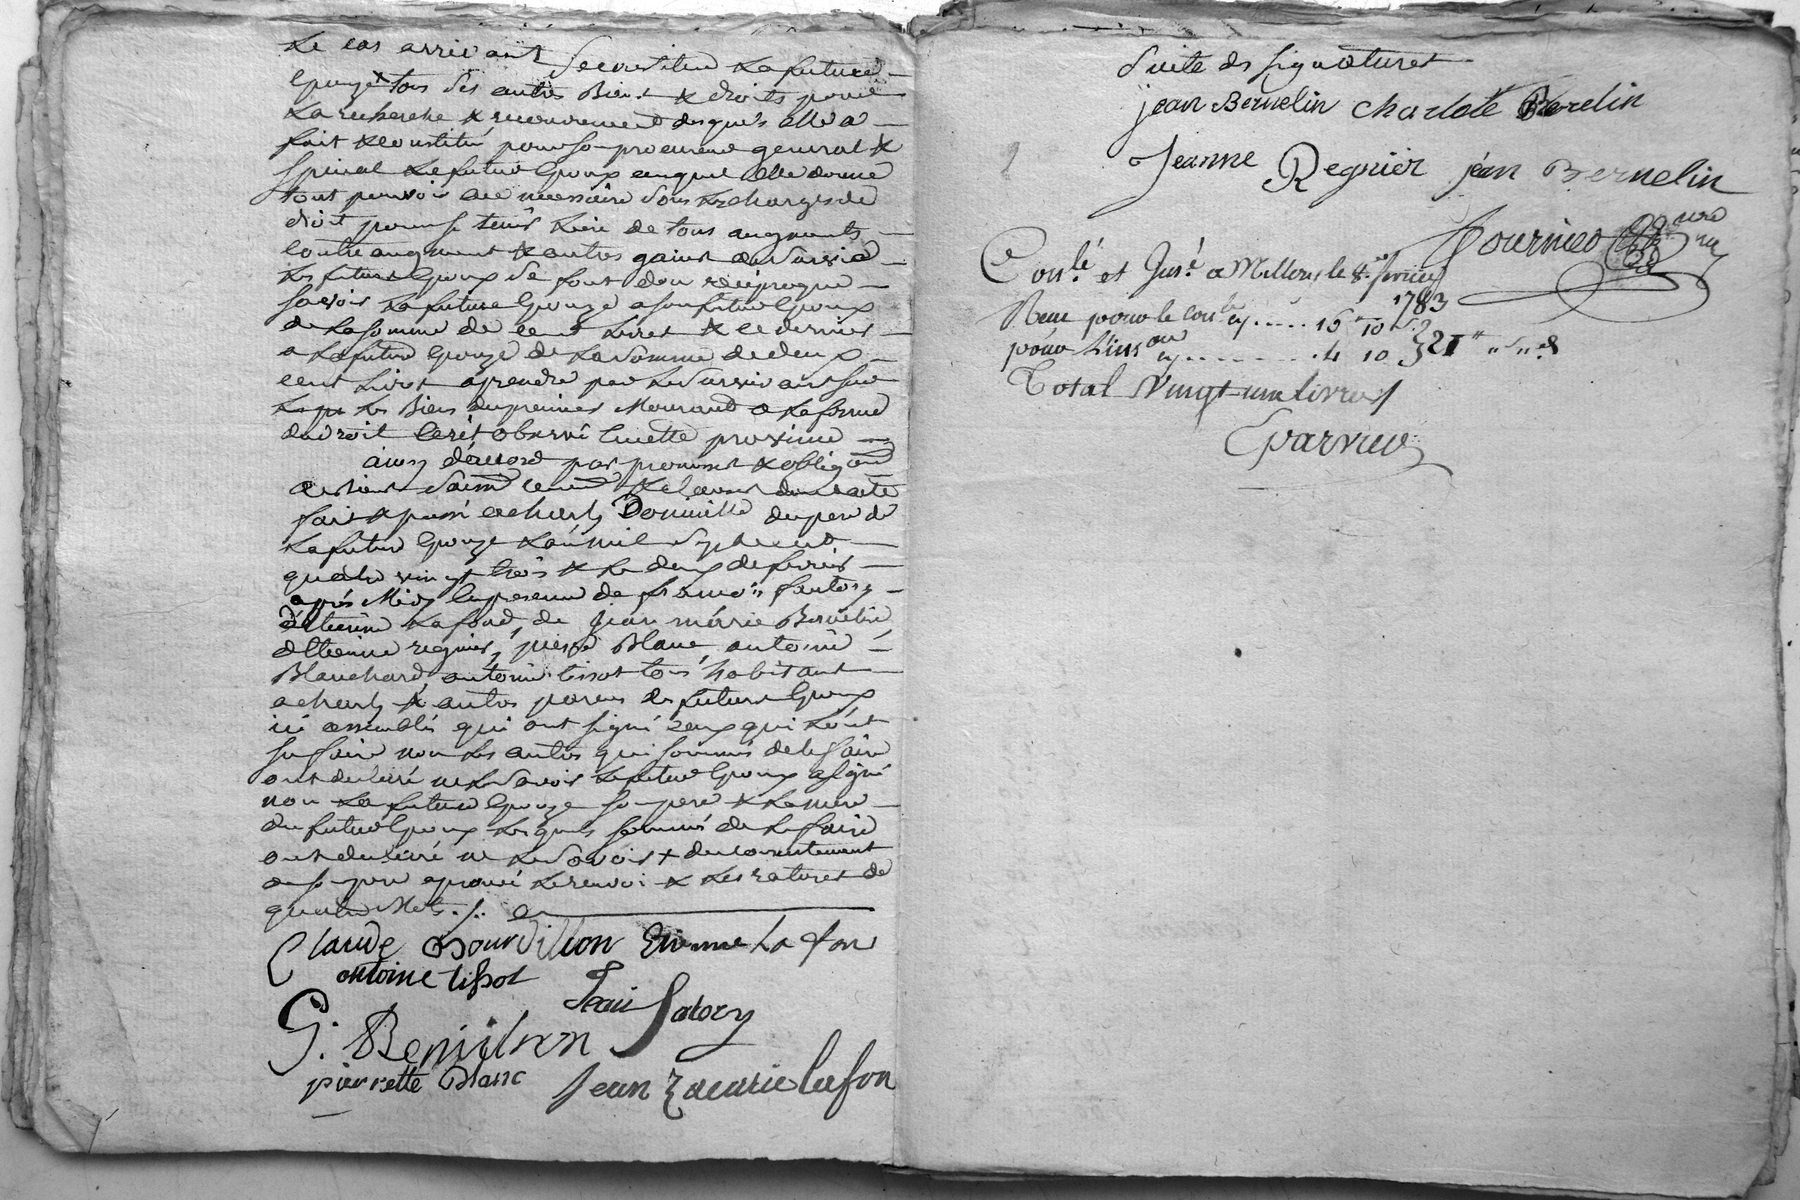 Le cas arrivant Se constitue La future
Epouze tous Ses autres Biens & droits pour
La recherche & recouvrement desquels elle a
fait & constitué pour son procureur general &
special Le futur Epoux auquel elle donne
tout pouvoir necessaire Sous Les charges de
droit pour se tenir de tous augments
Contre augment & autres gains de Survie
Les futurs Epoux Se font don réciproque
Savoir La future Epouze a son futur Epoux
de La Somme de cent Livres & ce dernier
a La future Epouze de La Somme de deux
cent Livres a prendre par Le Survivant Sur
Les Biens du premier Mourant a La forme
du droit
ainsy d'accord par promesses & obligaons
de Biens & clauses dont acte
fait & passé a charly Domicille du pere de
La future Epouze L'an mil Sept cent
quatre vingt trois & Le deux de fevrier
après Midy En presence de
d'Etienne Lafond, de Jean Bernelin
d'Etienne regnier, pierre Blanc, antoine
Blanchard, antoine tissot tous habitant
a charly & autres parens des futurs Epoux
ici assemblés qui ont signé ceux qui L'ont
su faire non Les autres qui sommés de le faire
ont declaré ne Le Savoir Le futur Epoux a signé
non La future Epouze son pere & La mere
du futur Epoux Lesquels sommés de Le faire
ont declaré ne Le Savoir + du consentement
de son pere aprouvé Le renvoi & Les ratures de
quatre Mots ./.
Claude Bourdillon Etienne La fon
antoine tissot
Jean
G.
pierrette Blanc Jean Zacarie lafon
Suite des signatures
jean Bernelin Charlote
Jeanne Regnier jéan Bernelin
Fournier
Conlé et Insé a Millery le 8e fevrier
1783
Recu pour le conle cy..... 16 " 10 s
pour L'insaon cy......... 4 10 } 21 " " s " d
Total Vingt-une livres
Eparvier